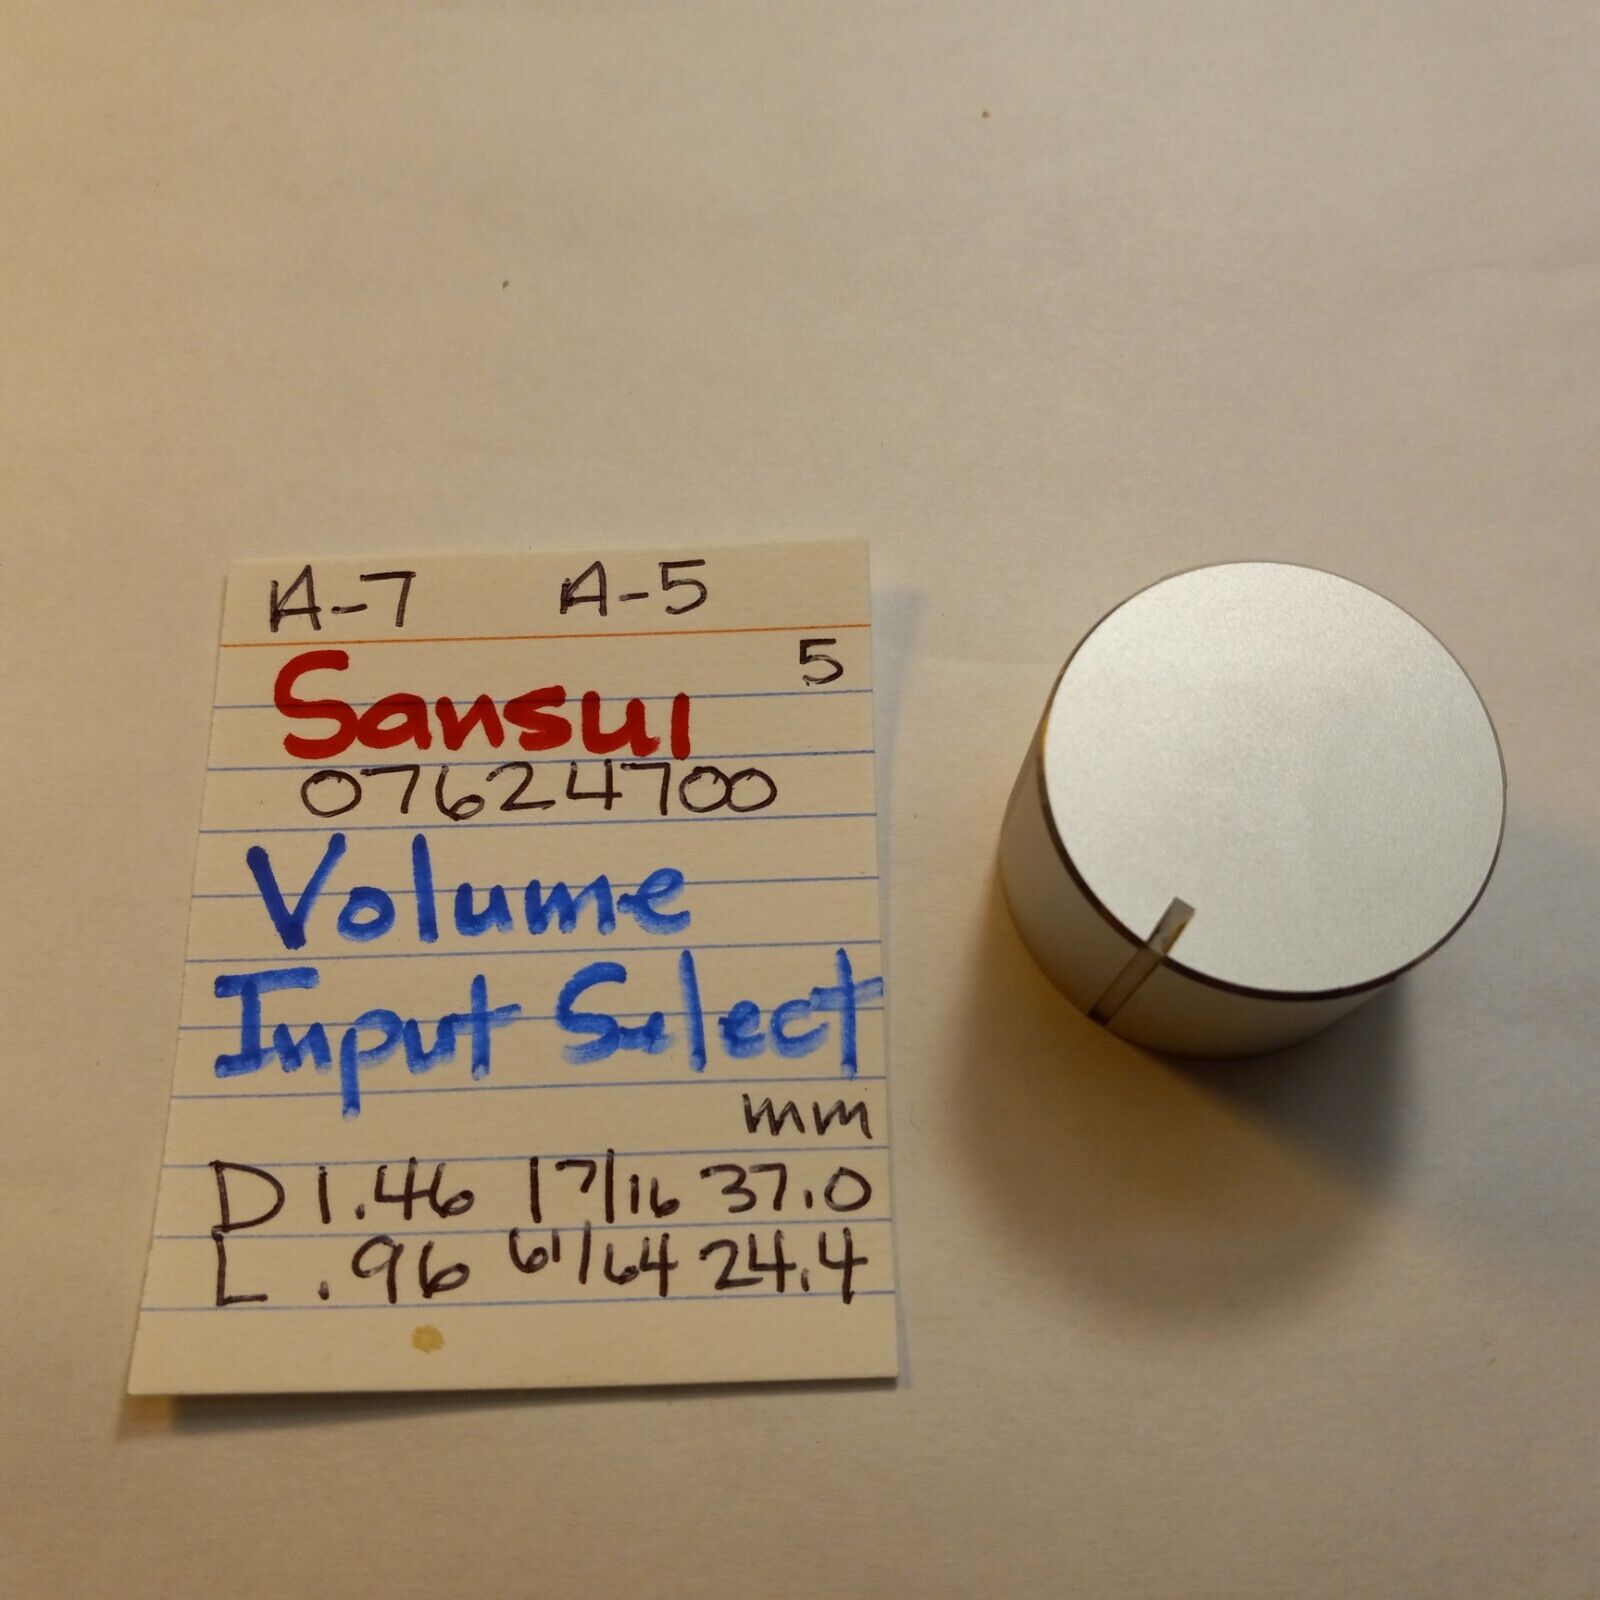 A-7 A-5
5
Sansui
07624700
Volume
Input Select
mm
D 1.46 1 7/16 37.0
L .96 61/64 24.4